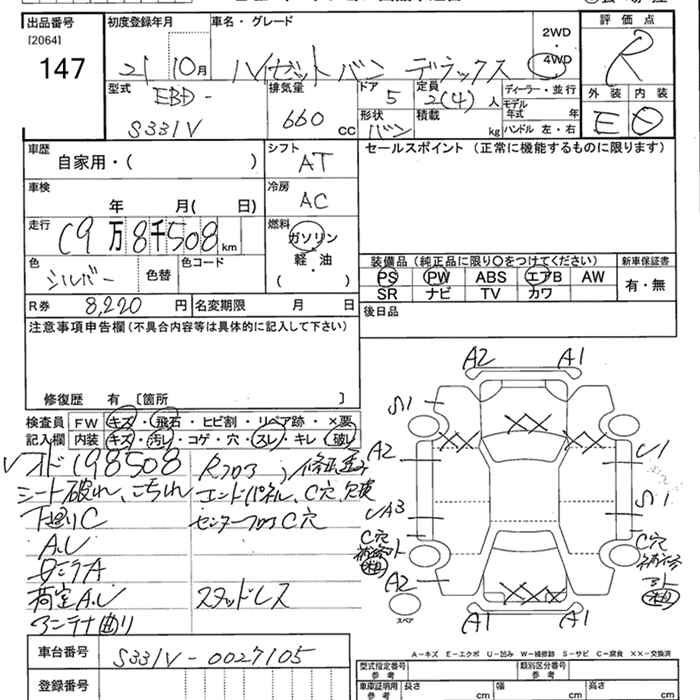 出品番号
[2064]
147
初度登録年月
21 10月
車名・グレード
ハイゼットバン デラックス
2WD
・
4WD
評価点
R
外装 内装
E D
型式
EBD-
S331V
排気量
660 cc
ドア
5
形状
バン
定員
2(4) 人
積載
kg
ディーラー・並行
モデル
年式 年
ハンドル 左・右
車歴
自家用・( )
シフト
AT
セールスポイント (正常に機能するものに限ります)
車検
年 月( 日)
冷房
AC
走行
(9万8千508 km
燃料
ガソリン
軽・油
・
( )
色
シルバー
色替
色コード
装備品(純正品に限り○をつけてください)
新車保証書
PS PW ABS エアB AW
SR ナビ TV カワ
有・無
R券 8,220 円
名変期限 月 日
後日品
注意事項申告欄(不具合内容等は具体的に記入して下さい)
修復歴 有 [箇所 ]
検査員
記入欄
FW キズ・飛石・ヒビ割・リペア跡・×要
内装 キズ・汚レ・コゲ・穴・スレ・キレ・破レ
シート破れ、こげれ
エンドパネル、C穴、欠損
下廻りC
センターフロアC穴
A.U
荷室A.U
スタッドレス
アンテナ曲り
A2 A1
XX
XX XX
A2
A2
XXX
A1 A1
スペア
A-キズ E-エクボ U-凹み W-補修跡 S-サビ C-腐食 XX-交換済
車台番号
S331V-0027105
登録番号
型式指定番号
参考
類別区分番号
参考
車庫証明用
参考
長さ cm
幅 cm
高さ cm